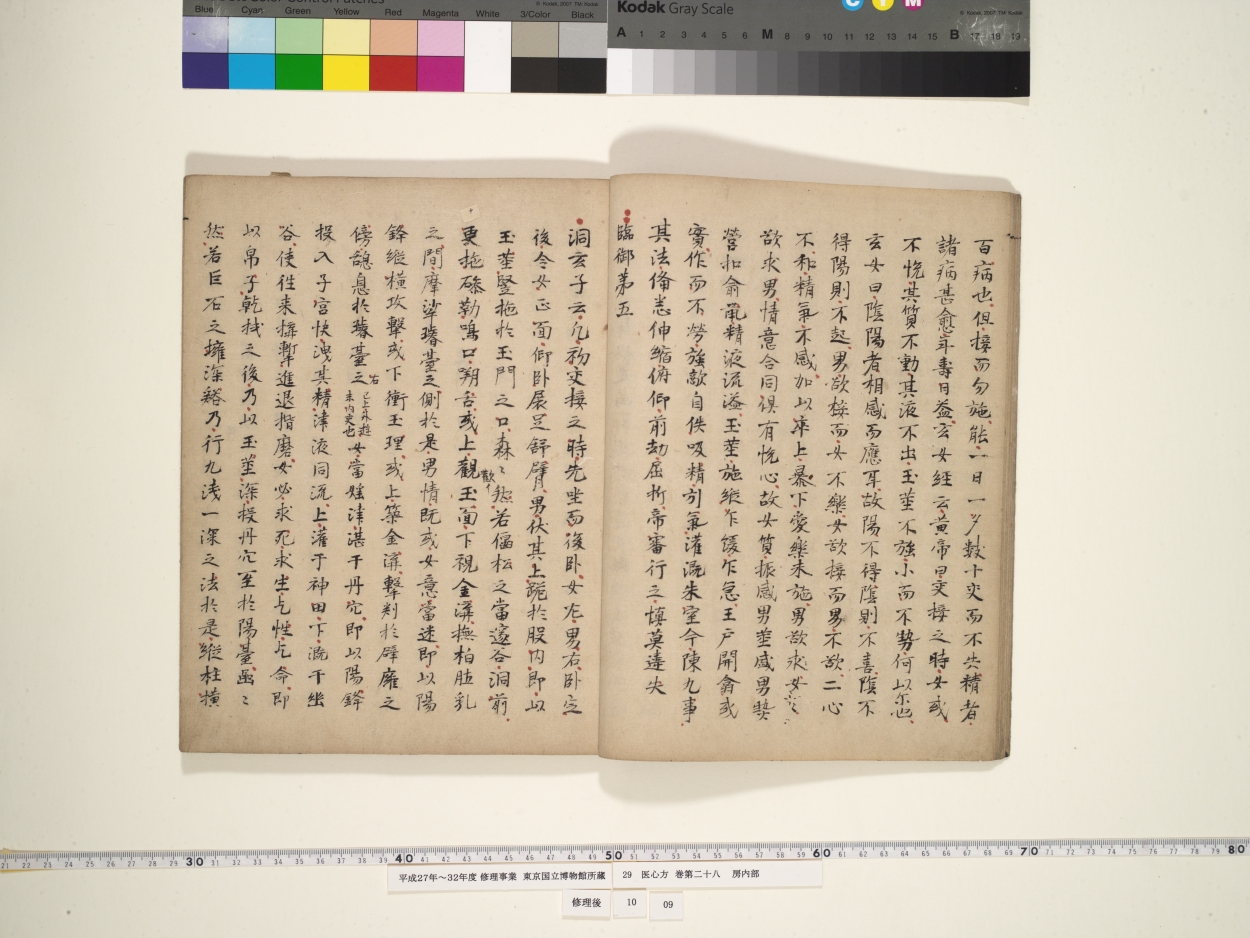 Blue Cyan Green Yellow Red Magenta White 3/Color Black
© Kodak, 2007 TM: Kodak
Kodak Gray Scale
C Y M
© Kodak, 2007 TM: Kodak
A 1 2 3 4 5 6 M 7 8 9 10 11 12 13 14 15 B 17 18 19
百病也但接而勿施能一日一夕数十交而不失精者
諸病甚愈年壽日益玄女經云黄帝曰交接之時女或
不悦其質不動其液不出玉莖不強小而不勢何以尓也
玄女曰陰陽者相感而應耳故陽不得陰則不喜陰不
得陽則不起男欲接而女不樂女欲接而男不欲二心
不和精氣不感加以卒上暴下愛樂未施男欲求女女
欲求男情意合同俱有悦心故女質振感男莖盛男勢
營扣俞鼠精液流溢玉莖施縱乍緩乍急玉戸開翕或
實作而不勞強敵自佚吸精引氣灌溉朱室今陳九事
其法備悉伸縮俯仰前却屈折帝審行之慎莫違失
臨御第五
洞玄子云凡初交接之時先坐而後卧女左男右卧定
後令女正面仰卧展足舒臂男伏其上跪於股内即以
玉莖竪拖於玉門之口森々然若偃松之當邃谷洞前
更拖磣勒鳴口嗍舌或上觀玉面下視金溝撫拍肚乳
之間摩挲璿臺之側於是男情既或女意當迷即以陽
鋒縱横攻擊或下衝玉理或上築金溝擊刾於辟雍之
傍憩息於璿臺之右 已上外遊未内交也 女當婬津湛于丹穴即以陽鋒
投入子宫快洩其精津液同流上灌于神田下溉于幽
谷使徃来拚擊進退揩磨女必求死求生乞性乞命即
以帛子乾拭之後乃以玉莖深投丹穴至於陽臺嵒々
然若巨石之擁深谿乃行九淺一深之法於是縱柱横
30 40 50 60 70 80
平成27年～32年度 修理事業 東京国立博物館所蔵 29 医心方 巻第二十八 房内部
修理後 10 09